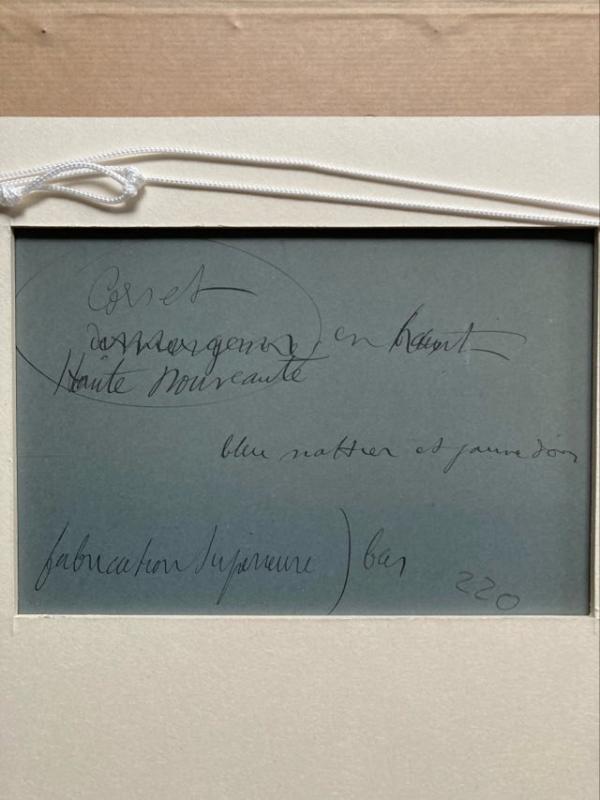 Corset
en haut
Haute nouveauté
bleu nattier et jaune d'or
fabrication supérieure) bas
220